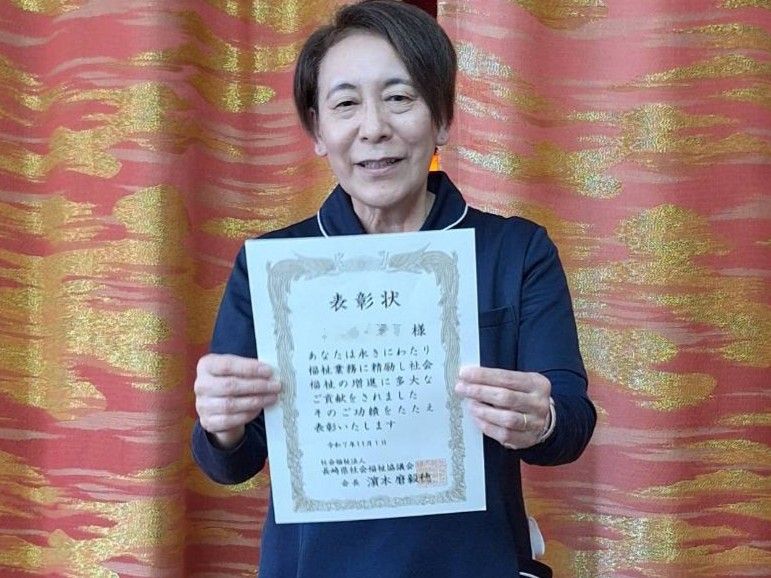 表彰状
様
あなたは永きにわたり
福祉業務に精励し社会
福祉の増進に多大な
ご貢献をされました
そのご功績をたたえ
表彰いたします
令和7年11月1日
社会福祉法人
長崎県社会福祉協議会
会長 濵本磨毅穂